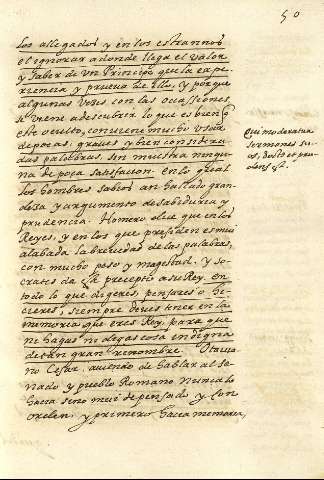 50
los allegados y en los estrannos
el ignorar adonde llega el valor
y saber de un Principe que la espe-
riencia y prueva de ello, y porque
algunas veces con las ocassiones
se viene a descubrir lo que es bien q
este oculto, conviene mucho usar
de pocas, graves y bien considera
das palabras, sin muestra ningu
na de poca satisfacion. en lo qual
los hombres sabios an hallado gran
deza y argumento de sabiduria y
prudencia. Homero dice que en los
Reyes, y en los que presiden es mui
alabada la brevedad de las palabras,
con mucho peso y magestad. y So-
crates da por precepto a su Rey. en
todo lo que dixeres, pensares o hi-
cieres, siempre deves tener en la
memoria que eres Rey, para que
ni hagas ni digas cosa indigna
de tan gran renombre. Otavia
no Cesar, aviendo de hablar al Se-
nado y pueblo Romano nunca lo
hacia sino mui de pensado y con
orden, y primero hacia memoria,
Qui moderatur
sermones su-
os, doctus et pru-
dens est.